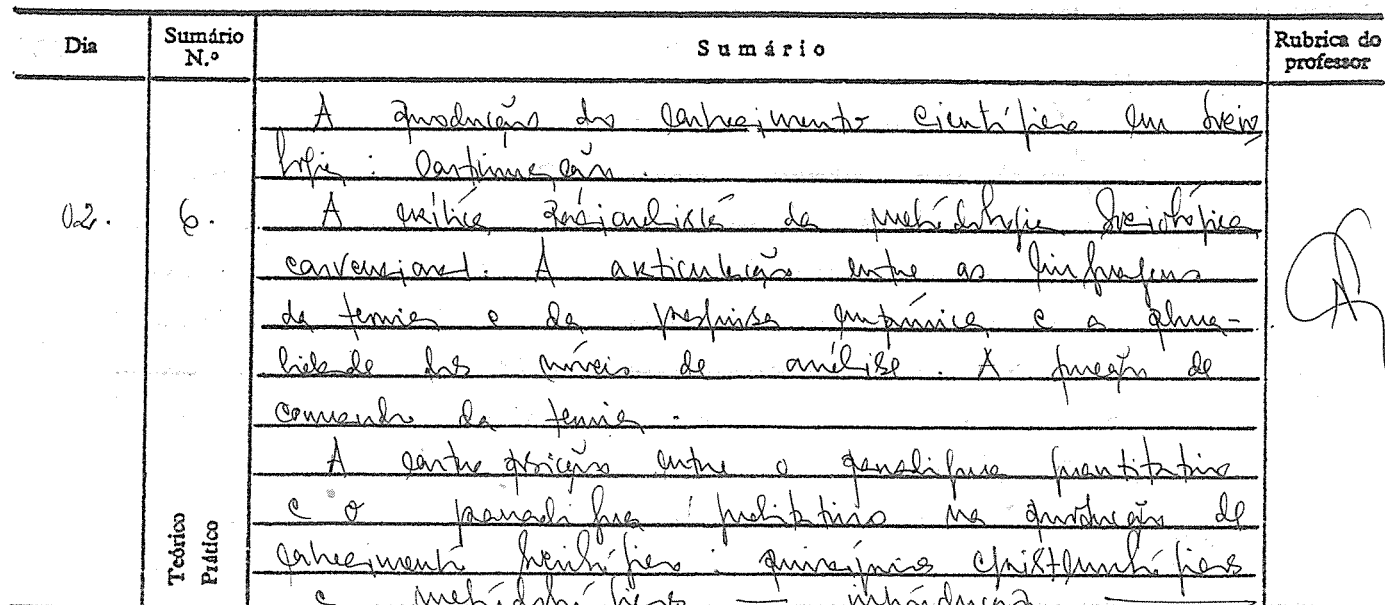 Dia
Sumário N.º
Sumário
Rubrica do professor
A produção do conhecimento científico em Socio
logia: continuação.
02. 6. A crítica racionalista da metodologia sociológica
convencional. A articulação entre as linguagens
da teoria e da pesquisa empírica e a plura-
lidade dos níveis de análise. A função de
comando da teoria.
A contraposição entre o paradigma quantitativo
e o paradigma qualitativo na produção de
conhecimento sociológico: princípios epistemológicos
e metodológicos — introdução
Teórico
Prático